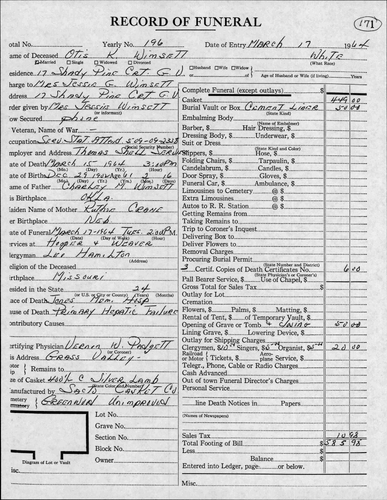 RECORD OF FUNERAL
171
Total No. Yearly No. 196 Date of Entry MARCH 17 1964
Name of Deceased Otis K. Wimsett White
Married Single Widowed Divorced Husband Wife Widow (What Race)
Residence 17 Shady Pine Crt G.V. Age of Husband or Wife (if living) Years
Charge to Mrs Jessie G. Wimsett
Address 17 Shady Pine Crt G.V.
Order given by Mrs Jessie Wimsett
How Secured phone
Veteran, Name of War
Occupation Serv Stat Attend
(Social Security Number)
Employer and Address Thomas Shell Service
Date of Death MARCH 15 1964 3:10 PM
Date of Birth Dec 29 1902 61 2 16
Name of Father Charley M Wimsett
His Birthplace OKLA
Maiden Name of Mother Ruthie Crane
Her Birthplace Neb
Date of Funeral MARCH 17-1964 Tues. 2:00 P.M.
(Date) (Day of Week) (Hour)
Services at Hooper & Weaver
Clergyman Lee Hamilton
Religion of the Deceased
Birthplace Missouri
Resided in the State 24
(or U.S. or City or County) (Years) (Months)
Place of Death Jones Mem. Hosp
Cause of Death Primary Hepatic Failure
Contributory Causes
Certifying Physician Vernon W. Padgett
His Address Grass Valley
Remains to
Size of Casket Silver Lamb
Manufactured by Sacto Casket Co
Cemetery Greenwood Unimproved
Lot No.
Grave No.
Section No.
Block No.
Owner
Diagram of Lot or Vault
Complete Funeral (except outlays) $
Casket 449 00
Burial Vault or Box Cement Liner 50 00
(State Kind)
Embalming Body $
Barber, $ Hair Dressing, $
Dressing Body, $ Underwear, $
Suit or Dress
(State Kind and Color)
Slippers, $ Hose, $
Folding Chairs, $ Tarpaulin, $
Candelabrum, $ Candles, $
Door Spray, $ Gloves, $
Funeral Car, $ Ambulance, $
Limousines to Cemetery @ $
Extra Limousines @ $
Autos to R. R. Station @ $
Getting Remains from
Taking Remains to
Trip to Coroner's Inquest
Delivering Box to
Deliver Flowers to
Removal Charges
Procuring Burial Permit
(State Number and District)
3 Certif. Copies of Death Certificates No. 6 00
(State Physician's or Coroner's)
Pall Bearer Service, $ Use of Chapel, $
Gross Total for Sales Tax $
Outlay for Lot
Cremation
Flowers, $ Palms, $ Matting, $
Rental of Tent, $ of Temporary Vault, $
Opening of Grave or Tomb & Lining 50 00
Lining Grave, $ Lowering Device, $
Outlay for Shipping Charges
Clergyman, $10 Singers, $ Organist, $5 20 00
Railroad or Motor Tickets, $ Aeroplane Service, $
Telegr., Phone, Cable or Radio Charges
Cash Advanced
Out of town Funeral Director's Charges
Personal Service
line Death Notices in Papers
(Names of Newspapers)
Sales Tax 10 98
Total Footing of Bill $ 585 98
Less $
Balance $
Entered into Ledger, page or below.
Misc.